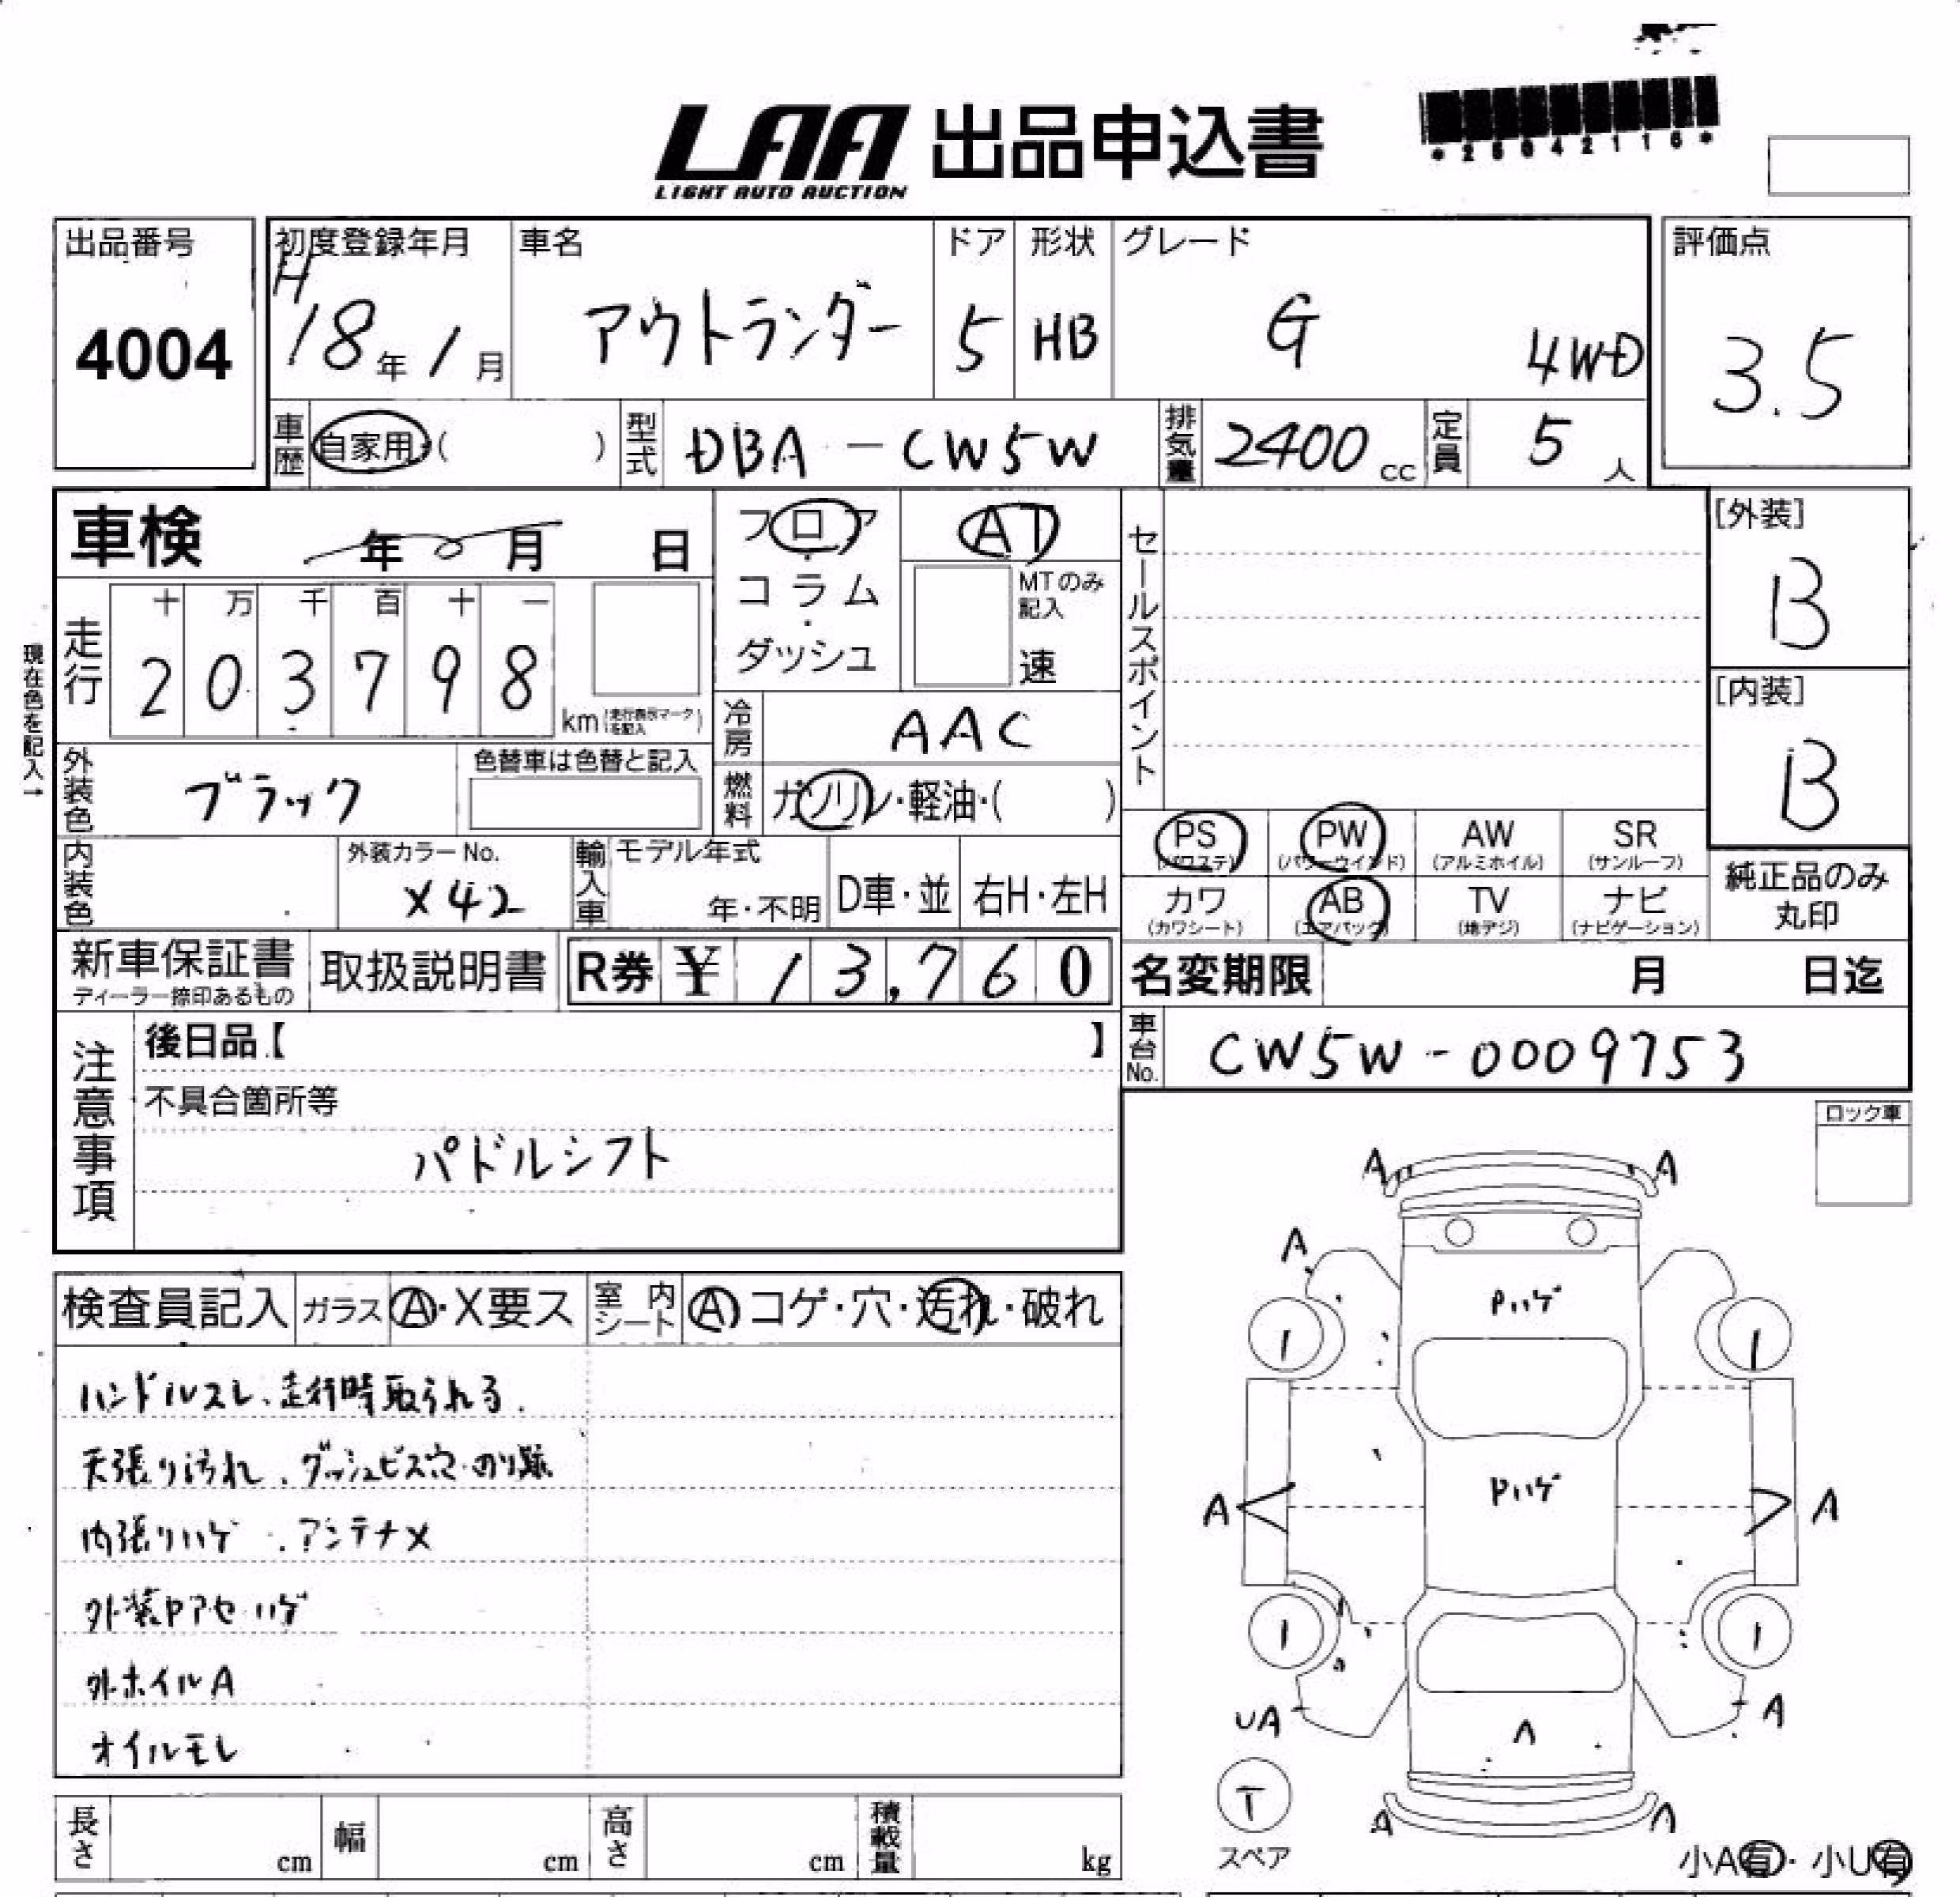 LAA 出品申込書
LIGHT AUTO AUCTION
出品番号
4004
初度登録年月
H18年1月
車名
アウトランダー
ドア
5
形状
HB
グレード
G 4WD
評価点
3.5
車歴
自家用・( )
型式
DBA-CW5W
排気量
2400cc
定員
5人
車検 年 月 日
フロア・コラム・ダッシュ
AT
MTのみ記入
速
セールスポイント
[外装]
B
[内装]
B
現在色を記入→
走行
十 万 千 百 十 一
2 0 3 7 9 8
km(走行表示マークを記入)
冷房
AAC
外装色
ブラック
色替車は色替と記入
燃料
ガソリン・軽油・( )
PS (パワステ)
PW (パワーウインド)
AW (アルミホイル)
SR (サンルーフ)
カワ (カワシート)
AB (エアバック)
TV (地デジ)
ナビ (ナビゲーション)
純正品のみ丸印
内装色
外装カラーNo.
X42
輸入車
モデル年式
年・不明
D車・並
右H・左H
新車保証書
ディーラー捺印あるもの
取扱説明書
R券 ¥ 13,760
名変期限 月 日迄
車台No.
CW5W-0009753
注意事項
後日品【 】
不具合箇所等
パドルシフト
ロック車
検査員記入
ガラス
A・X要ス
室内シート
A コゲ・穴・汚れ・破れ
ハンドルスレ、走行時取られる.
天張り汚れ、ダッシュビス穴・のり跡
内張りハゲ、アンテナX
外装Pアセハゲ
外ホイルA
オイルモレ
A A
A
Pハゲ
1 1
Pハゲ
A A
1 1
UA A
A
T
スペア
A A
小A有・小U有
長さ cm
幅 cm
高さ cm
積載量 kg